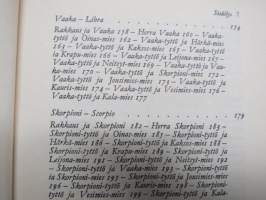 Sisältö 7
Vaaka – Libra
154
Rakkaus ja Vaaka 158 – Herra Vaaka 160 – Vaaka-
tyttö ja Oinas-mies 162 – Vaaka-tyttö ja Härkä-mies
163 – Vaaka-tyttö ja Kaksos-mies 165 – Vaaka-tyttö
ja Krapu-mies 166 – Vaaka-tyttö ja Leijona-mies
Vaaka-tyttö ja Neitsyt-mies 169 – Vaaka-tyttö ja Vaaka-
mies 170 – Vaaka-tyttö ja Skorpioni-mies 172 –
Vaaka-tyttö ja Jousimies-mies – Vaaka-tyttö ja
Kauris-mies – Vaaka-tyttö ja Vesimies-mies
Vaaka-tyttö ja Kala-mies 177
Skorpioni – Scorpio
179
Rakkaus ja Skorpioni 182 – Herra Skorpioni 185 –
Skorpioni-tyttö ja Oinas-mies 187 – Skorpioni-tyttö ja
Härkä-mies 186 – Skorpioni-tyttö ja Kaksos-mies 188 –
Skorpioni-tyttö ja Krapu-mies 189 – Skorpioni-tyttö ja
Leijona-mies 191 – Skorpioni-tyttö ja Neitsyt-mies 192
– Skorpioni-tyttö ja Vaaka-mies – Skorpioni-tyttö
ja Skorpioni-mies 195 – Skorpioni-tyttö ja Jousimies-
mies – Skorpioni-tyttö ja Kauris-mies 198 – Skorpioni-tyttö
ja Vesimies-mies 199 – Skorpioni-tyttö ja Kala-